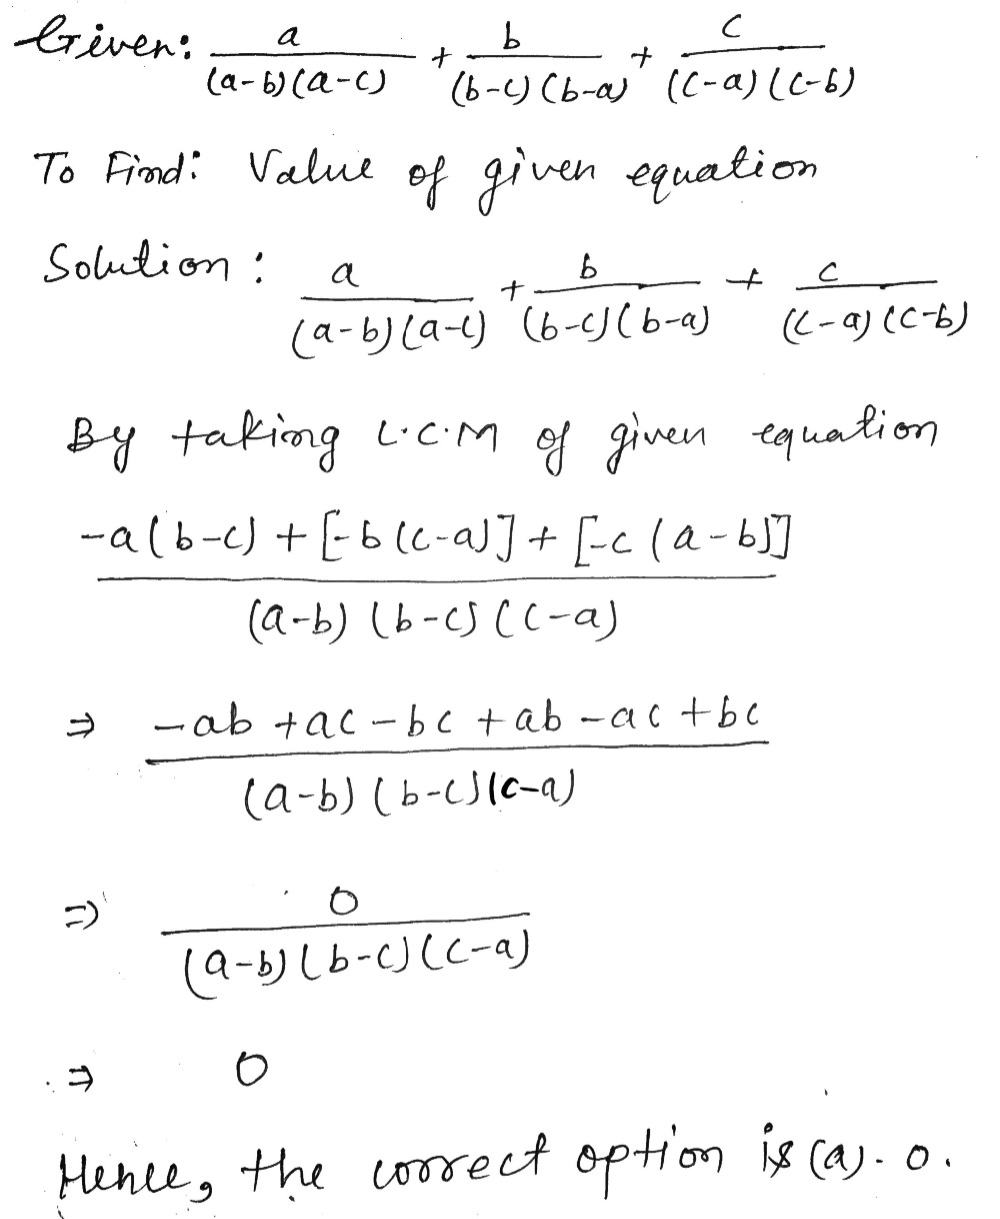 Given: a/((a-b)(a-c)) + b/((b-c)(b-a)) + c/((c-a)(c-b))
To Find: Value of given equation
Solution: a/((a-b)(a-c)) + b/((b-c)(b-a)) + c/((c-a)(c-b))
By taking L.C.M of given equation
(-a(b-c) + [-b(c-a)] + [-c(a-b)])/((a-b)(b-c)(c-a))
⇒ (-ab + ac - bc + ab - ac + bc)/((a-b)(b-c)(c-a))
⇒ 0/((a-b)(b-c)(c-a))
⇒ 0
Hence, the correct option is (a). 0.